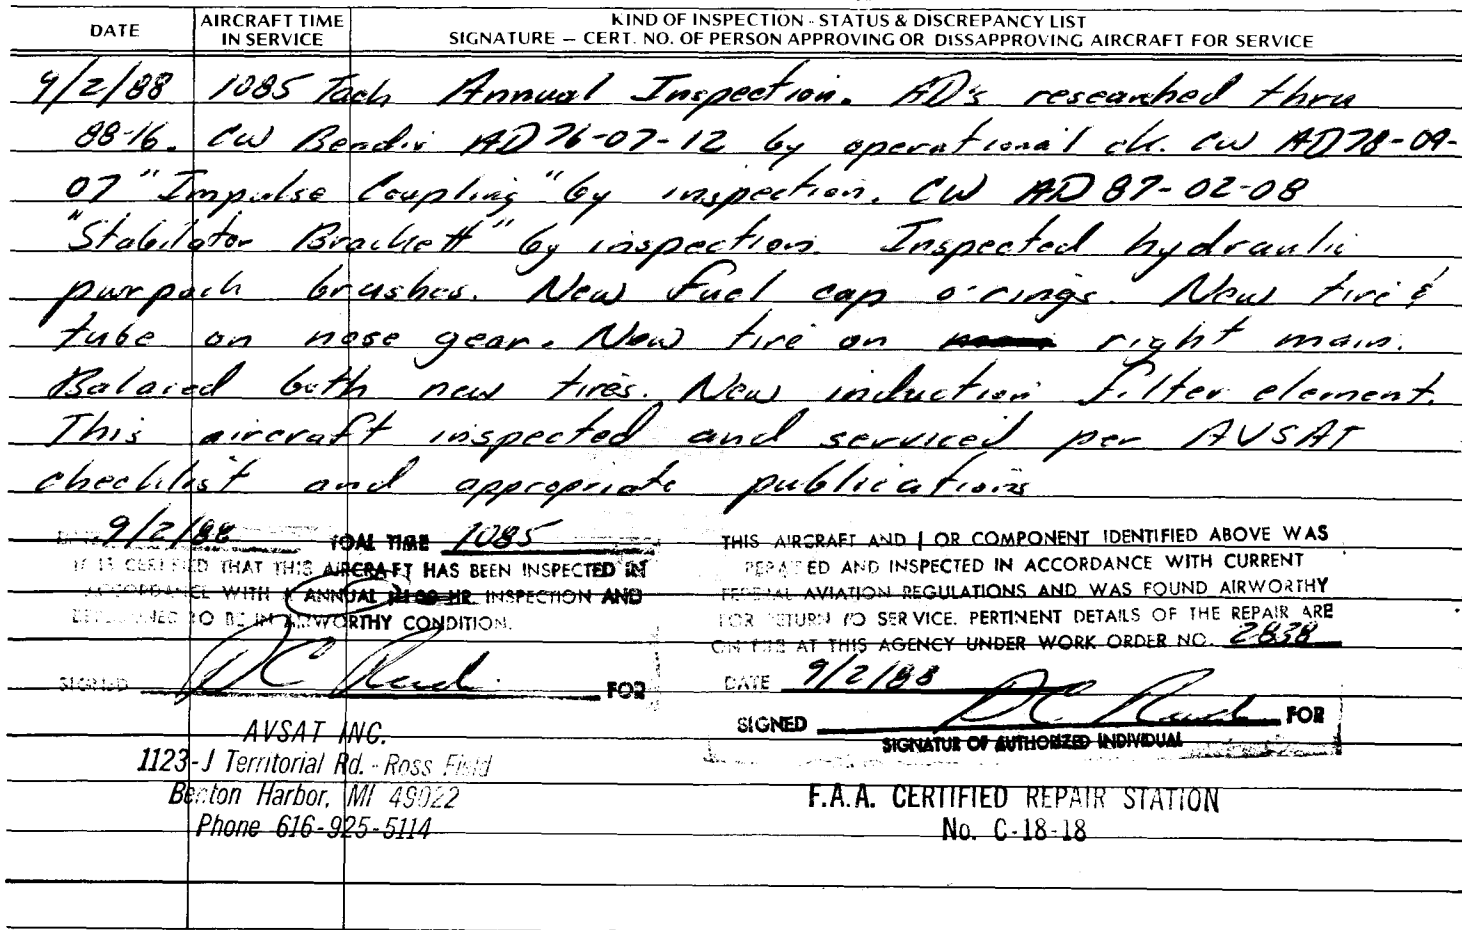 DATE
AIRCRAFT TIME
IN SERVICE
KIND OF INSPECTION - STATUS & DISCREPANCY LIST
SIGNATURE — CERT. NO. OF PERSON APPROVING OR DISSAPPROVING AIRCRAFT FOR SERVICE
9/2/88 1085 Tach Annual Inspection. AD's researched thru
88-16. CW Bendix AD 76-07-12 by operational ck. CW AD 78-09-
07 "Impulse Coupling" by inspection. CW AD 87-02-08
"Stabilator Brackett" by inspection. Inspected hydraulic
pwrpack brushes. New fuel cap o-rings. New tire &
tube on nose gear. New tire on right main.
Balaced both new tires. New induction filter element.
This aircraft inspected and serviced per AVSAT
checklist and appropriate publications
9/2/88 TOAL TIME 1085
IT IS CERTIFIED THAT THIS AIRCRAFT HAS BEEN INSPECTED IN
ACCORDANCE WITH A ANNUAL / 100 HR. INSPECTION AND
DETERMINED TO BE IN AIRWORTHY CONDITION.
SIGNED DC FOR
AVSAT INC.
1123-J Territorial Rd. - Ross Field
Benton Harbor, MI 49022
Phone 616-925-5114
THIS AIRCRAFT AND / OR COMPONENT IDENTIFIED ABOVE WAS
REPAIRED AND INSPECTED IN ACCORDANCE WITH CURRENT
FEDERAL AVIATION REGULATIONS AND WAS FOUND AIRWORTHY
FOR RETURN TO SERVICE. PERTINENT DETAILS OF THE REPAIR ARE
ON FILE AT THIS AGENCY UNDER WORK ORDER NO. 2838
DATE 9/2/88
SIGNED DC FOR
SIGNATUR OF AUTHORIZED INDIVIDUAL
F.A.A. CERTIFIED REPAIR STATION
No. C-18-18